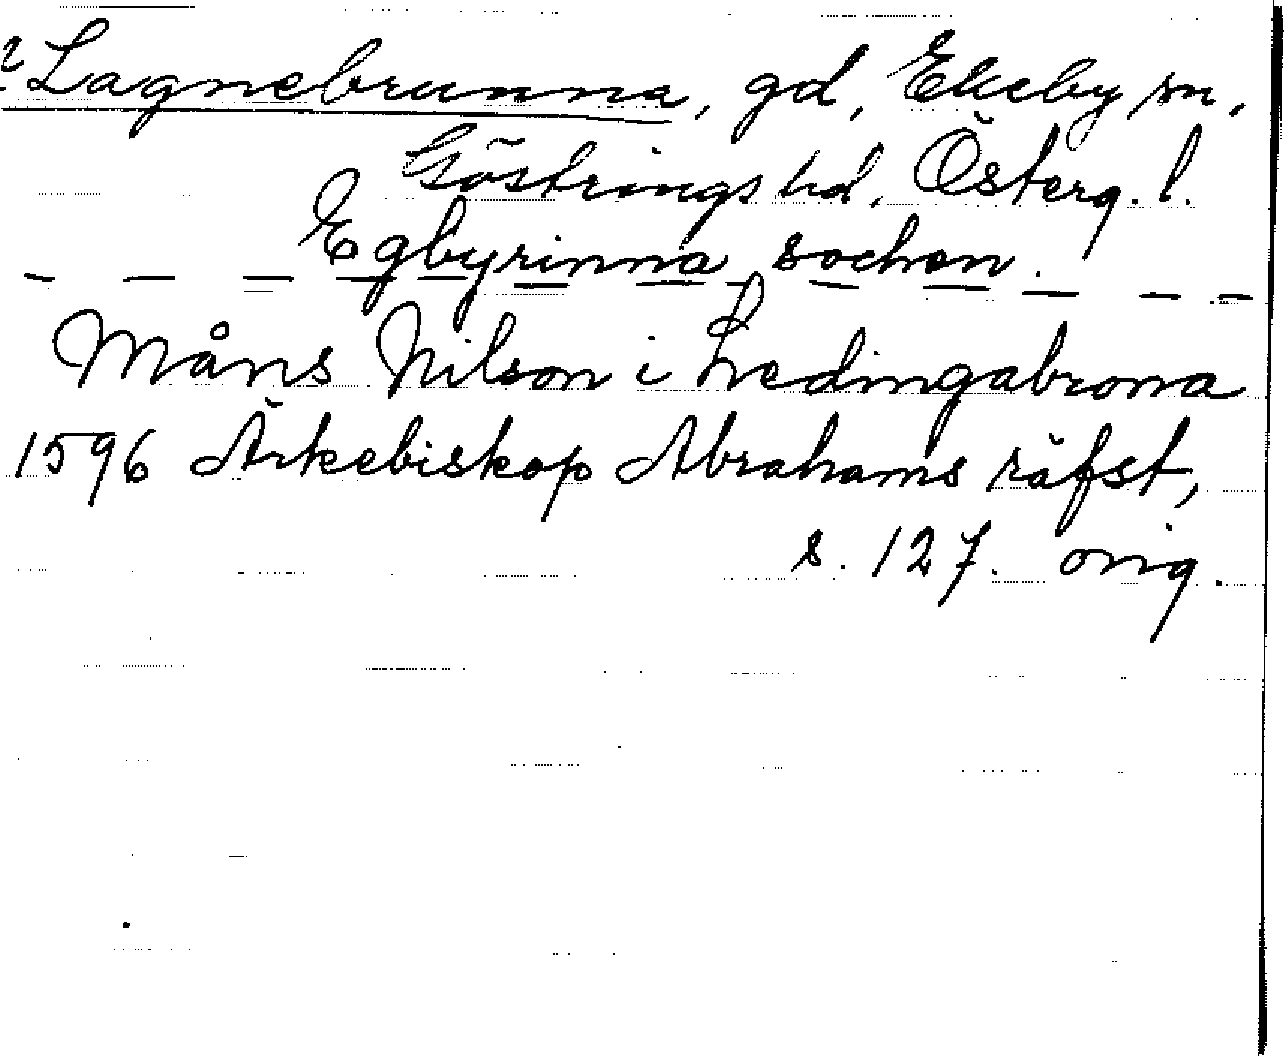 ? Lagnebrunna, gd, Ekeby sn,
Göstrings hd, Österg. l.
Egbyrinna sochen.
Måns Nilson i Lredingabrona
1596 Ärkebiskop Abrahams räfst,
s. 127. orig.